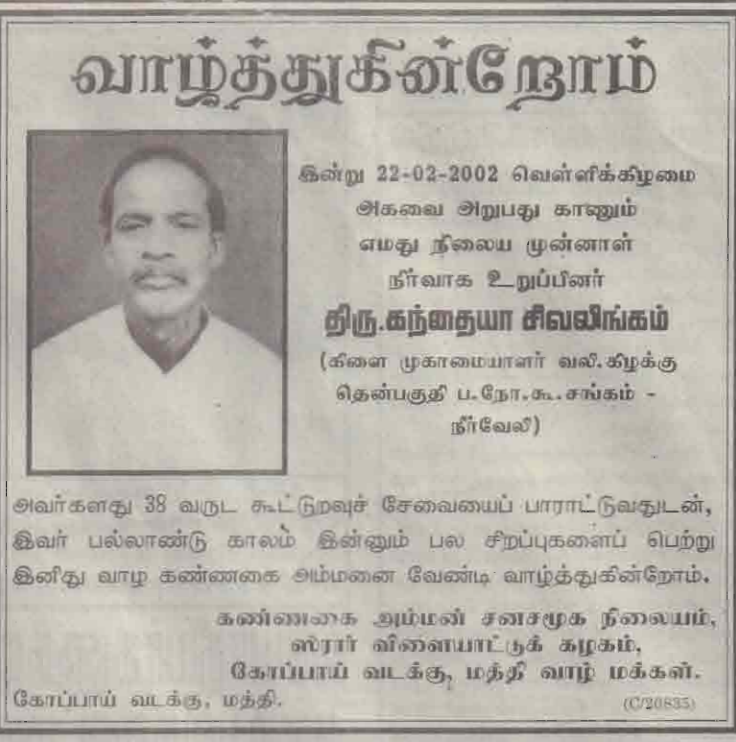 வாழ்த்துகின்றோம்
இன்று 22-02-2002 வெள்ளிக்கிழமை
அகவை அறுபது காணும்
எமது நிலைய முன்னாள்
நிர்வாக உறுப்பினர்
திரு.கந்தையா சிவலிங்கம்
(கிளை முகாமையாளர் வலி.கிழக்கு
தென்பகுதி ப.நோ.கூ.சங்கம் -
நீர்வேலி)
அவர்களது 38 வருட கூட்டுறவுச் சேவையைப் பாராட்டுவதுடன்,
இவர் பல்லாண்டு காலம் இன்னும் பல சிறப்புகளைப் பெற்று
இனிது வாழ கண்ணகை அம்மனை வேண்டி வாழ்த்துகின்றோம்.
கண்ணகை அம்மன் சனசமூக நிலையம்,
ஸ்ரார் விளையாட்டுக் கழகம்,
கோப்பாய் வடக்கு, மத்தி வாழ் மக்கள்.
கோப்பாய் வடக்கு, மத்தி.
(C/20835)